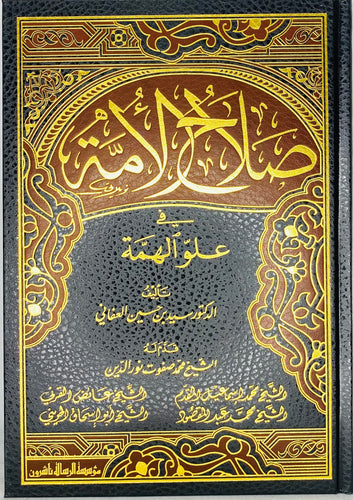 صلاح الأمة
في
علو الهمة
تأليف
الدكتور سيد بن حسين العفاني
قدم له
الشيخ محمد صفوت نور الدين
الشيخ محمد إسماعيل المقدم الشيخ عائض القرني
الشيخ محمد عبد المقصود الشيخ أبو إسحاق الحويني
مؤسسة الرسالة ناشرون